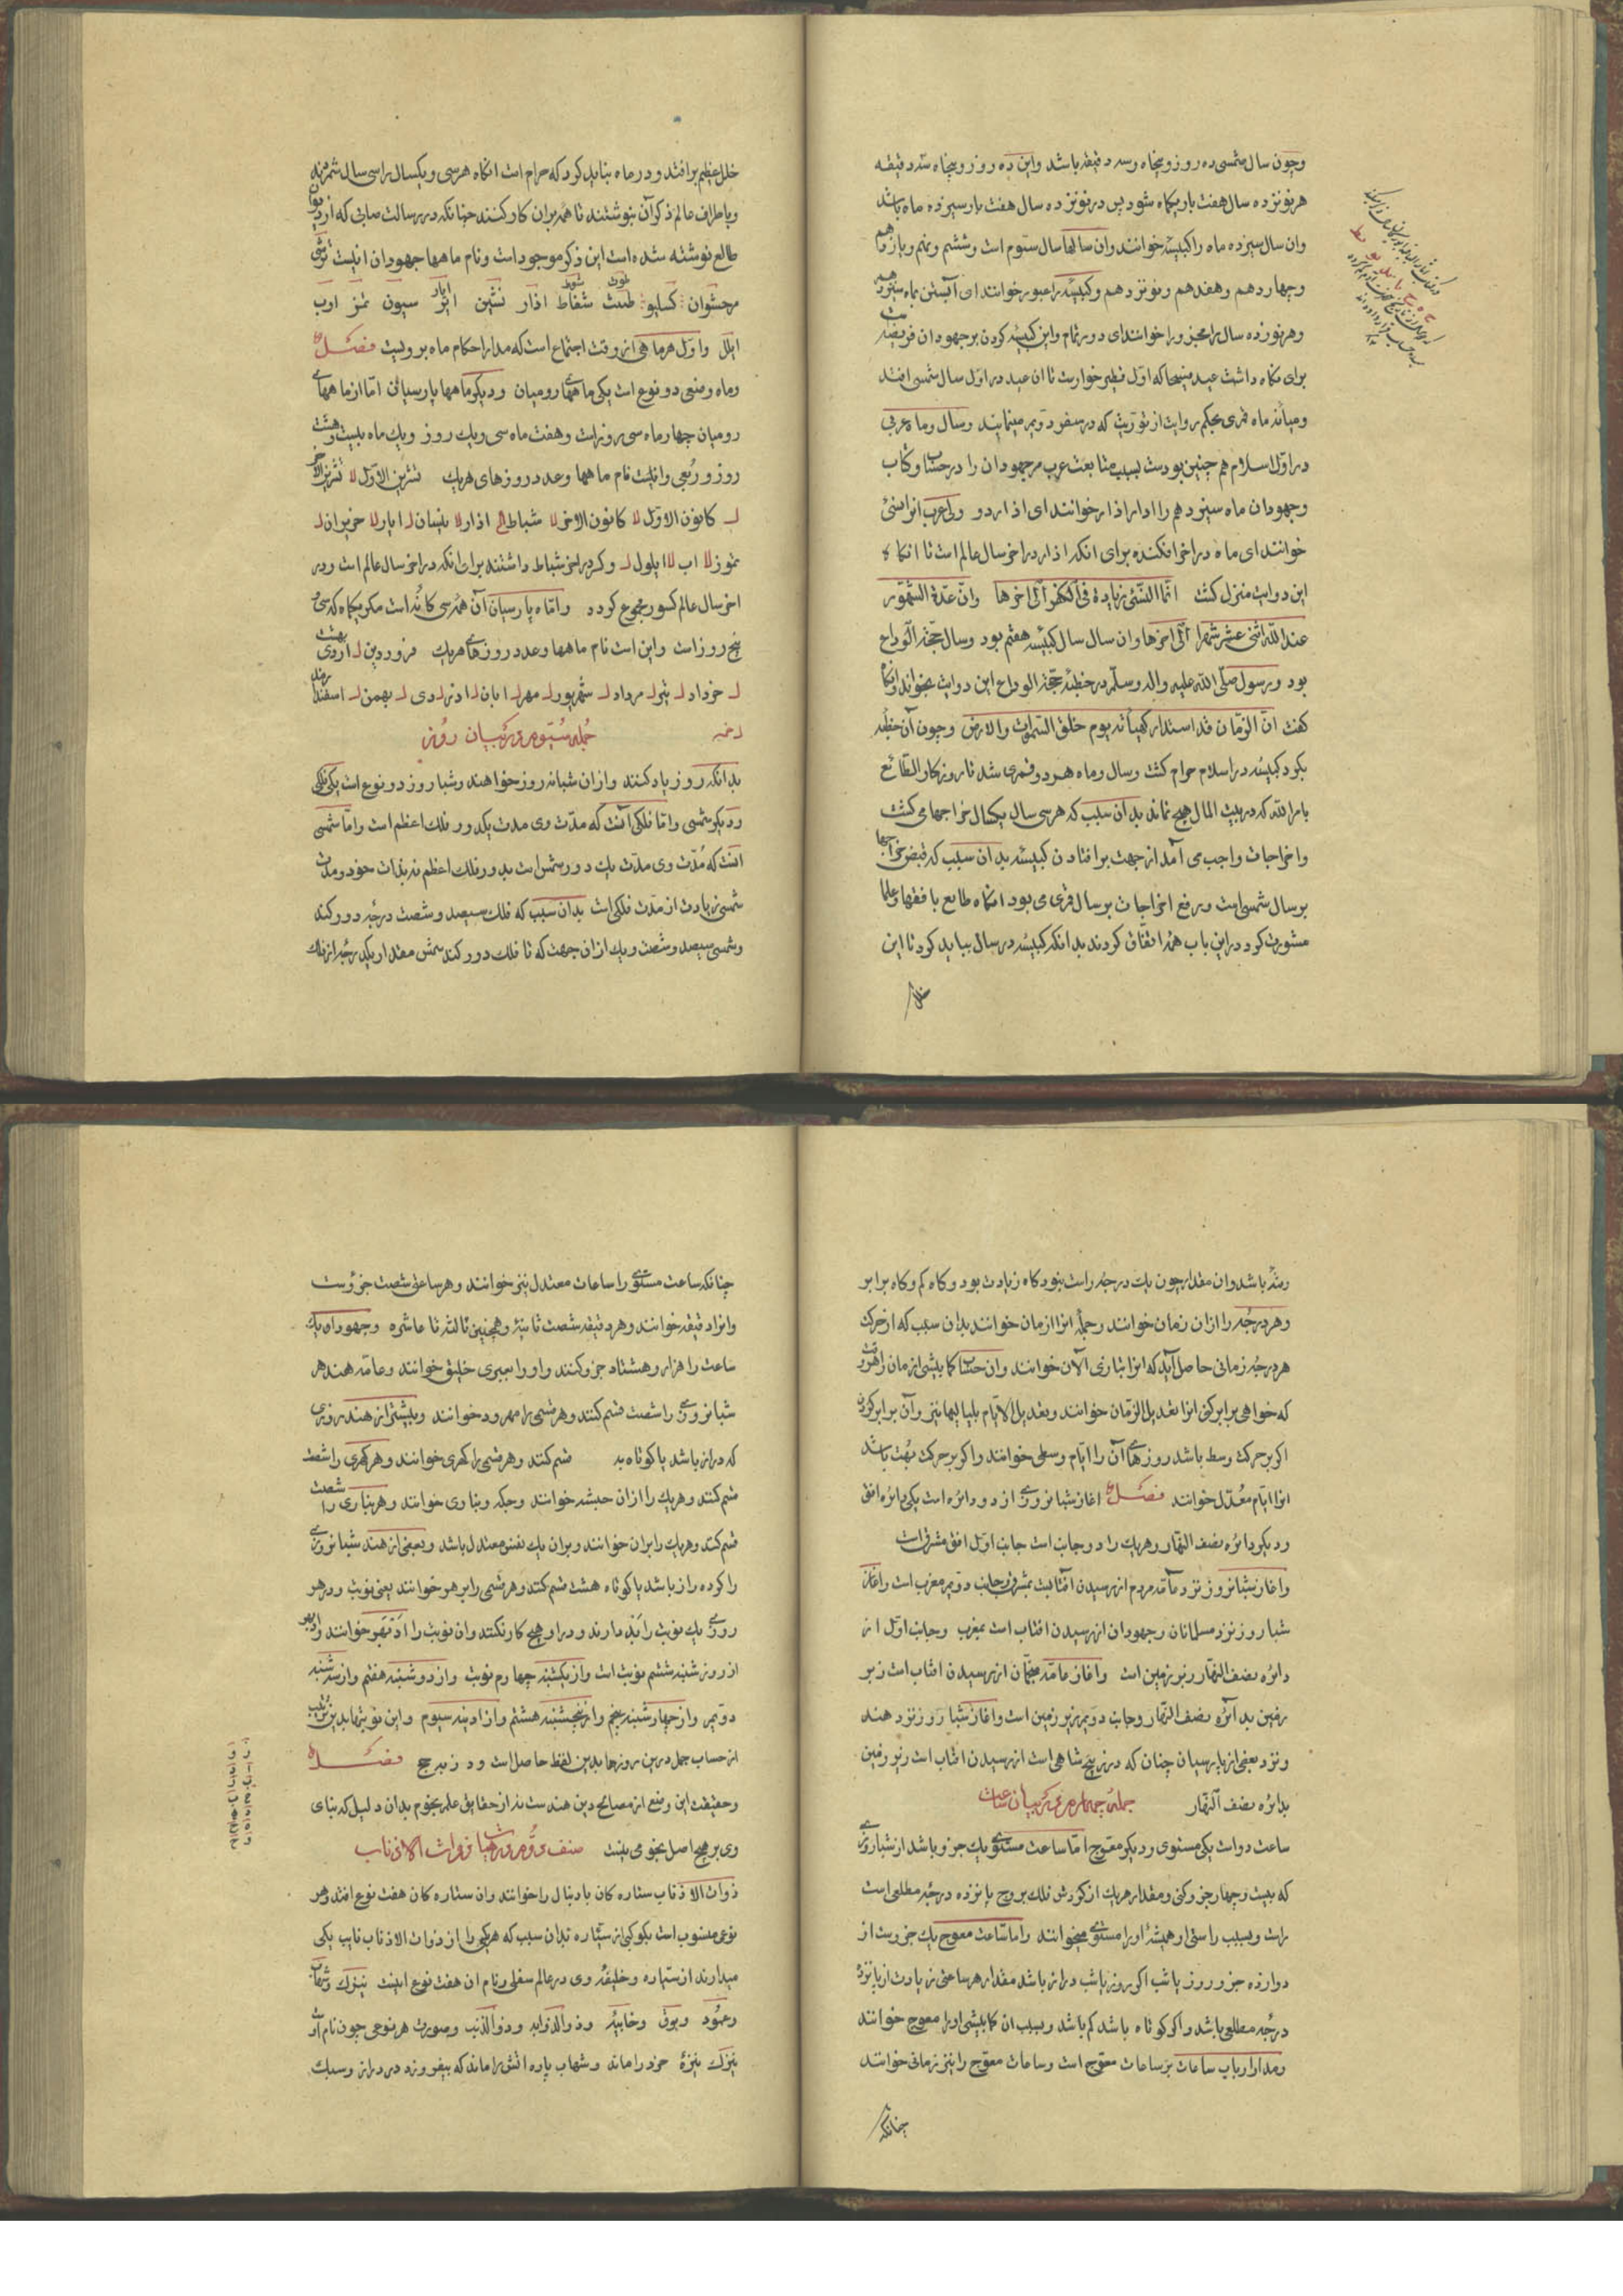 وچون سال شمسی ده روز و پنجاه و سه دقیقه باشد و این ده روز و پنجاه سه دقیقه
هر نوزده سال هفت بار یکماه شود پس در نوزده سال هفت بار سیزده ماه باشد
وان سال سیزده ماه را کبیسه خوانند وان سالها سال سیوم است و ششم و نهم و یازدهم
و چهاردهم و هفدهم و نوزدهم و کبیسه را عبور خوانند ای آبستن بماه سیزدهم
و هر نوزده سال را محزور خوانند ای دور تمام و این کبیسه کردن بر جهودان فریضه است
برای نگاه داشت عید که اول فطیر خوارست تا ان عید در اول سال شمسی افتد
و میانه ماه قمری بحکم روایت از توریت که در سفر دویم میفرمایند و سال و ماه عربی
در اول اسلام هم چنین بودست بسبب متابعت عرب مر جهودان را در حساب و کتاب
و جهودان ماه سیزدهم را اذار خوانند ای اذار دو ولی عرب انرا نسئ
خوانند ای ماه در اخر افکنده برای انکه اذار در اخر سال عالم است تا انکاه
این دو ایت منزل کشت انما النسئ زیادة فی الکفر الی اخرها وان عدة الشهور
عند الله اثنی عشر شهرا الی اخرها وان سال سال کبیسه هفتم بود و سال حجة الوداع
بود و رسول صلی الله علیه واله وسلم در خطبه حجة الوداع این دو ایت بخواند وانکاه
کفت ان الزمان قد استدار کهیأته یوم خلق السموات والارض وچون آن خطبه
بکرد کبیسه در اسلام حرام کشت و سال و ماه هر دو قمری شد تا روزکار الطائع
بامر الله که در بیت المال هیچ نماند بدان سبب که هر سی سال یکسال خراجها می کشت
و اخراجات واجب می آمد از جهت بر افتادن کبیسه بدان سبب که قبض خراجها
بر سال شمسی است و رفع اخراجات بر سال قمری می بود انکاه طایع با فقها و علما
مشورت کرد در این باب همه اتفاق کردند بدانکه کبیسه در سال بباید کرد تا این
خلل
خلل عظیم بر افتد و در ماه نباید کرد که حرام است انکاه هر سی و یکسال را سی سال شمردند
و باطراف عالم ذکر آن بنوشتند تا همه بران کار کنند چنانکه در رسالت صابی که از دیوان
طالع نوشته شده است این ذکر موجود است و نام ماهها جهودان اینست تشری
مرحشوان کسلیو طبث شفاط اذار نیسن ایر سیون تمز اوب
ایلل و اول هر ماهی از وقت اجتماع است که مدار احکام ماه بر ویست فصل
و ماه وضعی دو نوع است یکی ماههای رومیان و دیکر ماهها پارسیان اما از ماههای
رومیان چهار ماه سی روز است و هفت ماه سی و یک روز و یک ماه بیست و هشت
روز و ربعی و اینست نام ماهها و عدد روزهای هر یک تشرین الاول لا تشرین الاخر
ل کانون الاول لا کانون الاخر لا شباط کح اذار لا نیسان ل ایار لا حزیران ل
تموز لا اب لا ایلول ل و کسر در اخر شباط داشتند برای انکه در اخر سال عالم است و در
اخر سال عالم کسور مجموع کردد و اما ماه پارسیان آن همه سی کانه است مکر یکماه که سی و
پنج روز است و این است نام ماهها و عدد روزهای هر یک فروردین ل اردی بهشت
ل خرداد ل تیر ل مرداد ل شهریور ل مهر ل ابان ل اذر ل دی ل بهمن ل اسفندارمذ
له جمله سیوم در بیان روز
بدانکه روز یاد کنند و ازان شبانه روز خواهند و شباروز دو نوع است یکی فلکی
و دیکر شمسی و اما فلکی آنست که مدت وی مدت یکدور فلک اعظم است و اما شمسی
انست که مدت وی مدت یک دور شمس است بدور فلک اعظم نه بذات خود و مدت
شمسی زیادت از مدت فلکی است بدان سبب که فلک سیصد و شصت درجه دور کند
و شمسی سیصد و شصت و یک ازان جهت که تا فلک دور کند شمس مقدار یکدرجه از فلک
رفته باشد وان مقدار چون یک درجه راست نبود کاه زیادت بود و کاه کم و کاه برابر
و هر درجه را ازان زمان خوانند و جمله انرا ازمان خوانند بدان سبب که از حرکت
هر درجه زمانی حاصل آید که انرا بتازی الآن خوانند وان حساب کمابیشی ازمان را هر وقت
که خواهی برابر کنی انرا تعدیل الزمان خوانند و تعدیل الایام بلیالیها نیز وآن برابر کردن
اکر بر حرکت وسط باشد روزهای آن را ایام وسطی خوانند و اکر بر حرکت بهت باشد
انرا ایام معدل خوانند فصل اغاز شبانروزی از دو دائره است یکی دایره افق
و دیکر دائره نصف النهار و هر یک را دو جانب است جانب اول افق مشرق است
و اغاز شبانروز نزد عامه مردم از رسیدن افتابست بمشرق و جانب دویم مغرب است و اغاز
شباروز نزد مسلمانان و جهودان از رسیدن افتاب است بمغرب و جانب اول از
دائره نصف النهار زبر زمین است و اغاز عامه منجمان از رسیدن افتاب است زبر
زمین بدائره نصف النهار و جانب دویم زیر زمین است و اغاز شباروز نزد هند
و نزد بعضی از پارسیان چنان که در زیج شاهی است از رسیدن افتاب است زیر زمین
بدائره نصف النهار جمله چهارم در بیان ساعات
ساعت دو است یکی مستوی و دیکر معوج اما ساعت مستوی یک جزو باشد از شباروزی
که بیست و چهار جزو کنی و مقدار هر یک از کردش فلک بروج پانزده درجه مطلعی است
راست و بسبب راستی او همیشه او را مستوی میخوانند و اما ساعت معوج یک جزوست از
دوازده جزو روز یا شب اکر روز یا شب دراز باشد مقدار هر ساعتی زیادت از پانزده
درجه مطلعی باشد و اکر کوتاه باشد کم باشد و بسبب ان کمابیشی او را معوج خوانند
و مدار ارباب ساعات بر ساعات معوج است و ساعات معوج را نیز زمانی خوانند
چنانکه
چنانکه ساعت مستوی را ساعات معتدل نیز خوانند و هر ساعتی شصت جزوست
و انرا دقیقه خوانند و هر دقیقه شصت ثانیه و همچنین ثالثه تا عاشره و جهودان یک
ساعت را هزار و هشتاد جزو کنند و او را بعبری خلیق خوانند و عامه هند هر
شبانروزی را شصت قسم کنند و هر قسمی را مهرود خوانند و بیشتر از هند روزی
که دراز باشد یا کوتاه به قسم کنند و هر قسمی را کهری خوانند و هر کهری را شصت
قسم کنند و هر یک را ازان حبشه خوانند و جکه و بناری خوانند و هر بناری را شصت
قسم کنند و هر یک را بران خوانند و بران یک نفس معتدل باشد و بعضی از هند شبانروزی
را کرده راز باشد یا کوتاه هشت قسم کنند و هر قسمی را برهر خوانند یعنی نوبت و در هر
روزی یک نوبت را بد دارند و در او هیچ کار نکنند وان نوبت را خوانند و
از روز شنبه ششم نوبت است و از یکشنبه چهارم نوبت و از دوشنبه هفتم و از سه شنبه
دویم و از چهارشنبه پنجم و از پنجشنبه هشتم و از ادینه سیوم و این نوبتها بدین ترتیب
از حساب جمل درین روزها بدین لفظ حاصل است و د ز ب ه ح ج فصل
و حقیقت این وضع از مصالح دین هندست نه از حقایق علم نجوم بدان دلیل که بنای
وی بر هیچ اصل نجومی نیست صنف دوم در شهابها و ذوات الاذناب
ذوات الاذناب ستاره کان با دنبال را خوانند وان ستاره کان هفت نوع افتد و هر
نوعی منسوب است بکوکبی از سیاره بدان سبب که هر یکی را از ذوات الاذناب نایب یکی
میدارند از سیاره و خلیفه وی در عالم سفلی و نام ان هفت نوع اینست نیزک و شهاب
و عمود و بوق و خابیه و ذو الذوابه و ذو الذنب و صورت هر نوعی چون نام اوست
نیزک نیزهٔ خرد را ماند و شهاب پاره اتش را ماند که بیفروزد در دراز و سبک